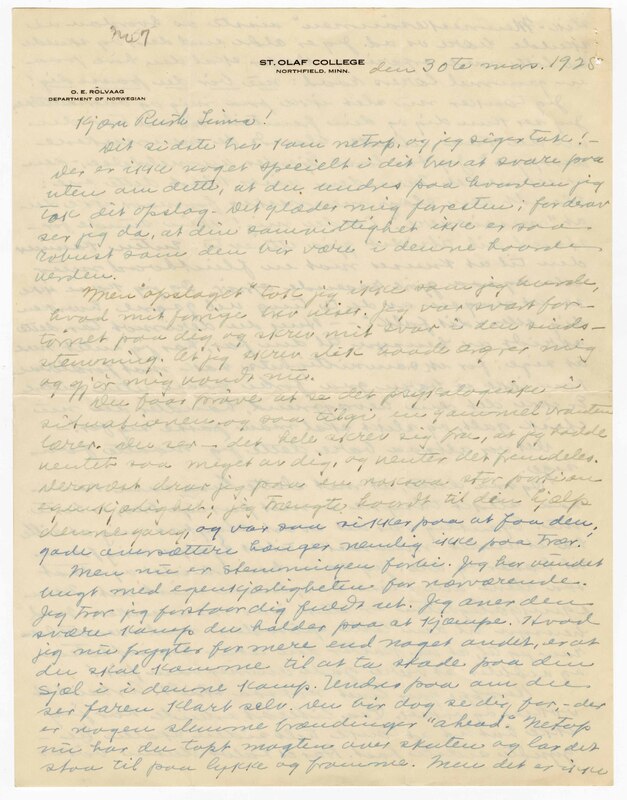 ST. OLAF COLLEGE
NORTHFIELD, MINN.
den 30te mars. 1928
O. E. RÖLVAAG
DEPARTMENT OF NORWEGIAN
Kjære Ruth
Dit sidste brev kom netop, og jeg siger tak! –
Der er ikke noget specielt i dit brev at svare paa
uten om dette, at du undres paa hvordan jeg
tok dit opslag. Det glæder mig foresten; for derav
ser jeg da, at din samvittighet ikke er saa
robust som den bør være i denne haarde
verden.
Men "opslaget" tok jeg ikke som jeg burde,
hvad mit forrige brev viser. Jeg var svært for-
tørnet paa dig og skrev mit svar i den sinds-
stemning. At jeg skrev slik baade ærgrer mig
og gjør mig vondt nu.
Du faar prøve at se det psykologiske i
situationen og saa tilgi en gammel vranten
lærer. Du ser – det hele skrev sig fra, at jeg hadde
ventet saa meget av dig, og venter det fremdeles.
Dernæst drar jeg paa en noksaa stor portion
egenkjærlighet; jeg trængte haardt til den hjælp
denne gang, og var saa sikker paa at faa den;
gode oversættere hænger nemlig ikke paa trær.
Men nu er stemningen forbi. Jeg har vundet
bugt med egenkjærligheten for nærværende.
Jeg tror jeg forstaar dig fuldt ut. Jeg aner den
svære kamp du holder paa at kjæmpe. Hvad
jeg nu frygter for mere end noget andet, er at
du skal komme til at ta skade paa din
sjæl i denne kamp. Undres paa om du
ser faren klart selv. Du bør dog se dig for, – der
er nogen slemme brændinger "ahead". Netop
nu har du tapt magten over skuten og lar det
staa til paa lykke og fromme. Men det er ikke